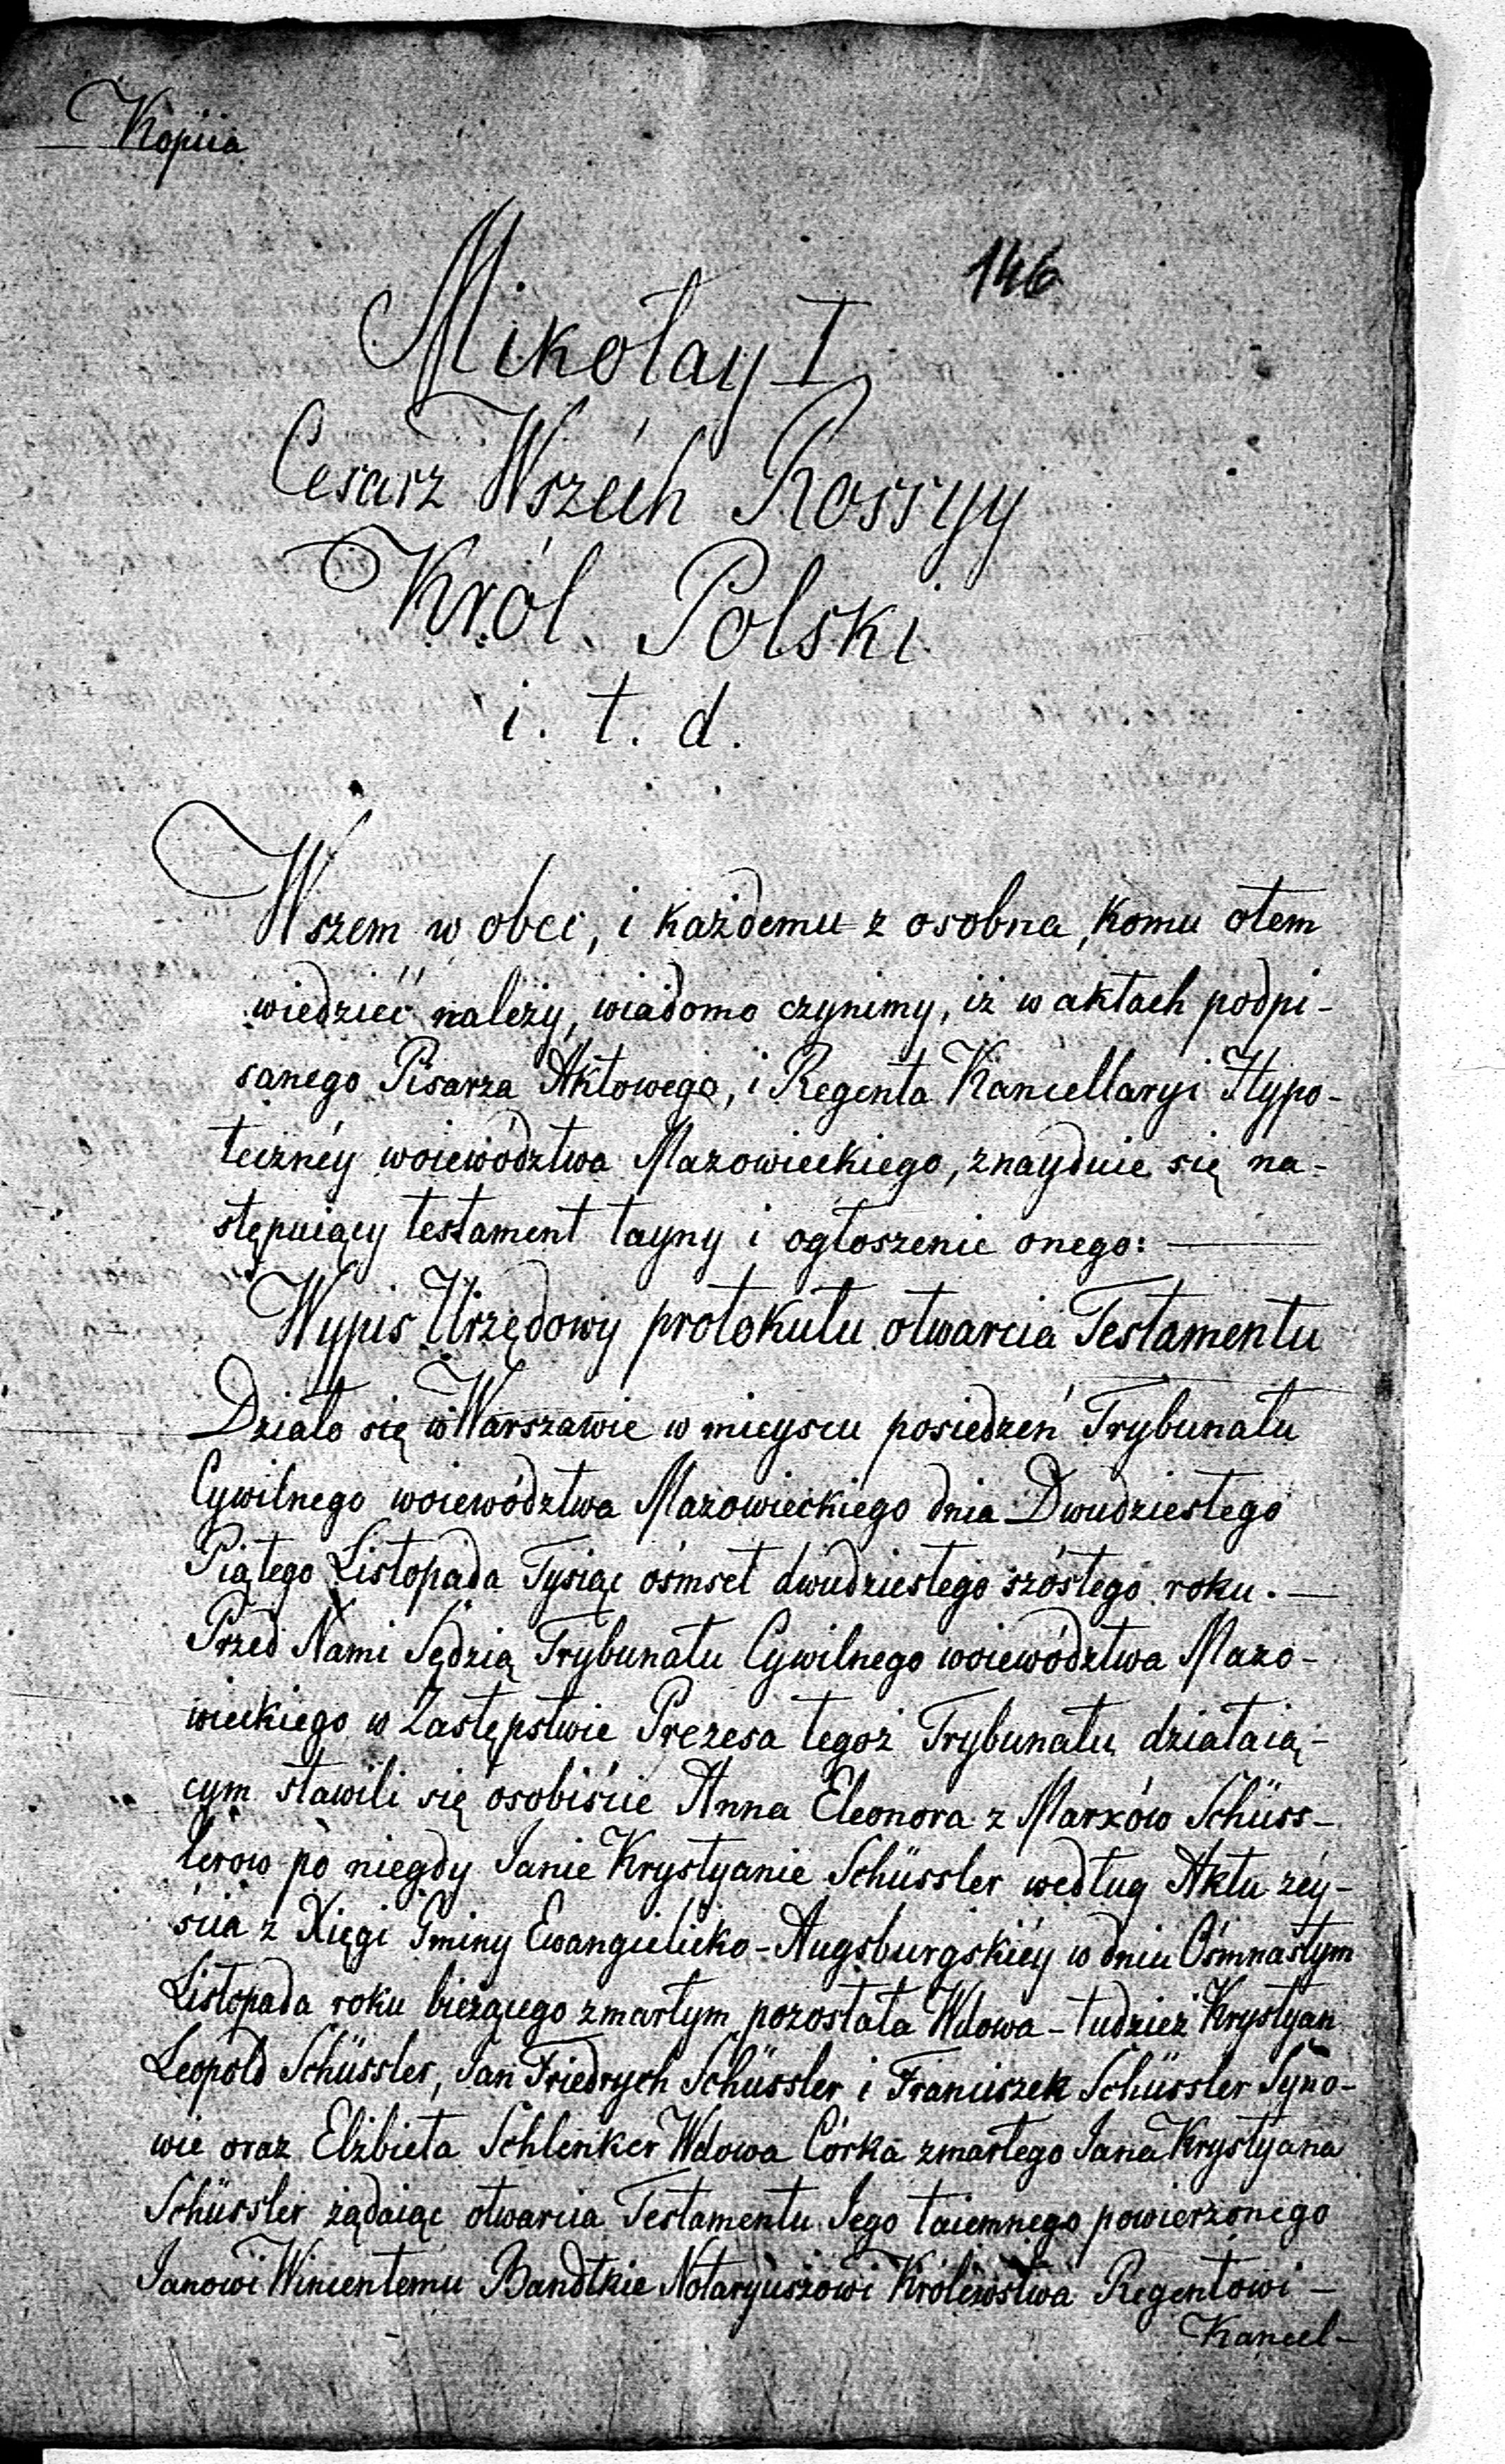 Kopiia
146
Mikołay I
Cesarz Wszech Rossyy
Król Polski
i. t. d.
Wszem w obec, i każdemu z osobna, komu otem
wiedzieć należy, wiadomo czynimy, iż w aktach podpi-
sanego Pisarza Aktowego, i Regenta Kancellaryi Hypo-
teczney woiewództwa Mazowieckiego, znayduie się na-
stępuiący testament tayny i ogłoszenie onego:
Wypis Urzędowy protokułu otwarcia Testamentu
Działo się w Warszawie w mieyscu posiedzeń Trybunału
Cywilnego woiewództwa Mazowieckiego dnia Dwudziestego
Piątego Listopada Tysiąc ośmset dwudziestego szóstego roku. —
Przed Nami Sędzią Trybunału Cywilnego woiewództwa Mazo-
wieckiego w Zastępstwie Prezesa tegoż Trybunału działaią-
cym stawili się osobiście Anna Eleonora z Marxów Schüss-
lerow po niegdy Janie Krystyanie Schüssler według Aktu zey-
ścia z Xięgi Gminy Ewangielicko-Augsburgskiéy w dniu Ośmnastym
Listopada roku bieżącego zmarłym pozostała Wdowa - tudzież Krystyan
Leopold Schüssler, Jan Friedrych Schüssler i Franciszek Schüssler Syno-
wie oraz Elżbieta Schlenker Wdowa Córka zmarłego Jana Krystyana
Schüssler żądaiąc otwarcia Testamentu Jego taiemnego powierzonego
Janowi Wincentemu Bandtkie Notaryuszowi Królewstwa Regentowi —
Kancel-